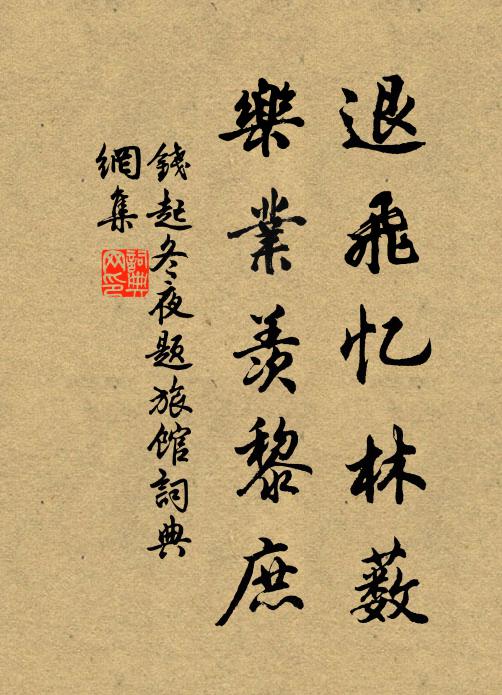 退飛忆林薮
樂業羡黎庶
錢起冬夜题旅館詞典
網集
詞典网印